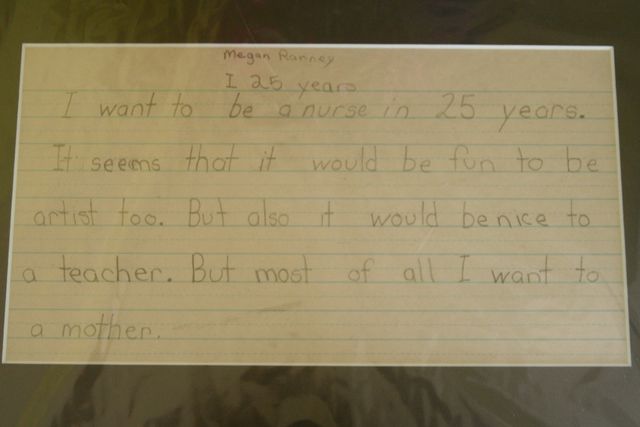 Megan Ranney
I 25 years
I want to be a nurse in 25 years.
It seems that it would be fun to be
artist too. But also it would be nice to
a teacher. But most of all I want to
a mother.